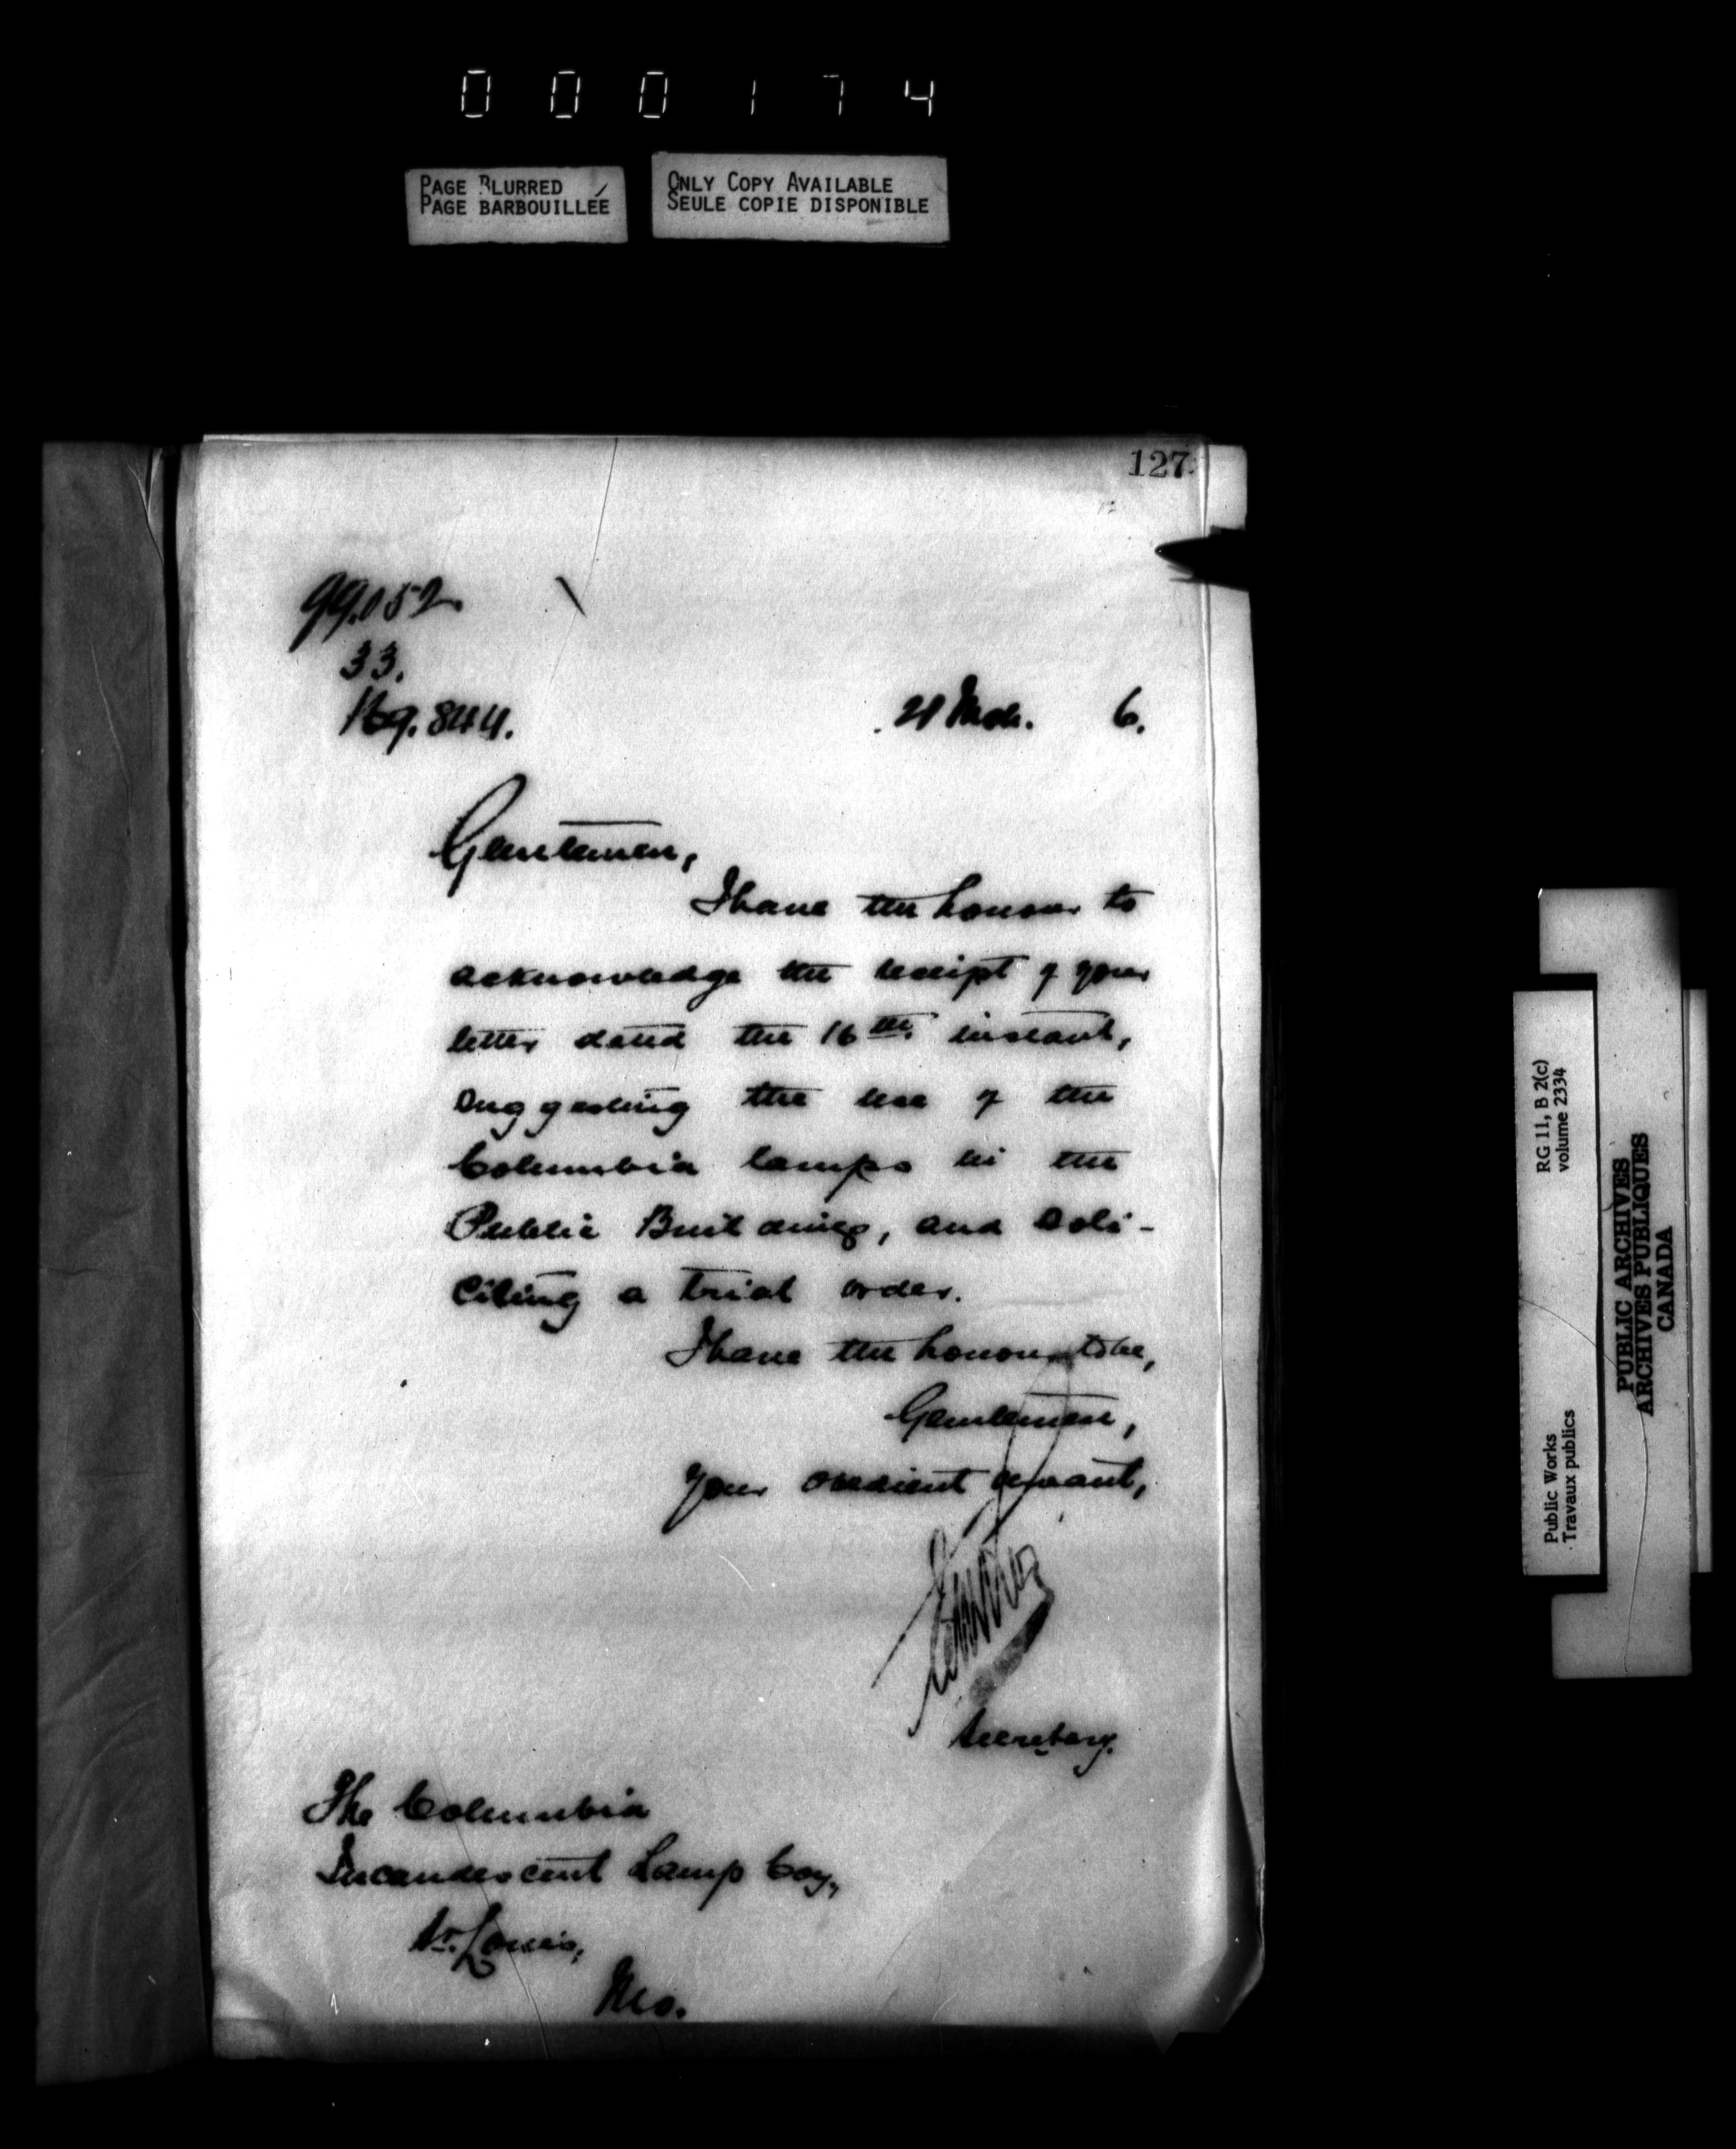 000174
PAGE BLURRED
PAGE BARBOUILLÉE
ONLY COPY AVAILABLE
SEULE COPIE DISPONIBLE
127
99.052
33.
169.844.
21 Mch. 6.
Gentlemen,
I have the honour to
acknowledge the receipt of your
letter dated the 16th instant,
suggesting the use of the
Columbia lamps in the
Public Buildings, and soli-
citing a trial order.
I have the honour to be,
Gentlemen,
Your obedient servant,
Secretary.
The Columbia
Incandescent Lamp Coy,
St. Louis,
Mo.
RG 11, B 2(c)
volume 2334
Public Works
Travaux publics
PUBLIC ARCHIVES
ARCHIVES PUBLIQUES
CANADA